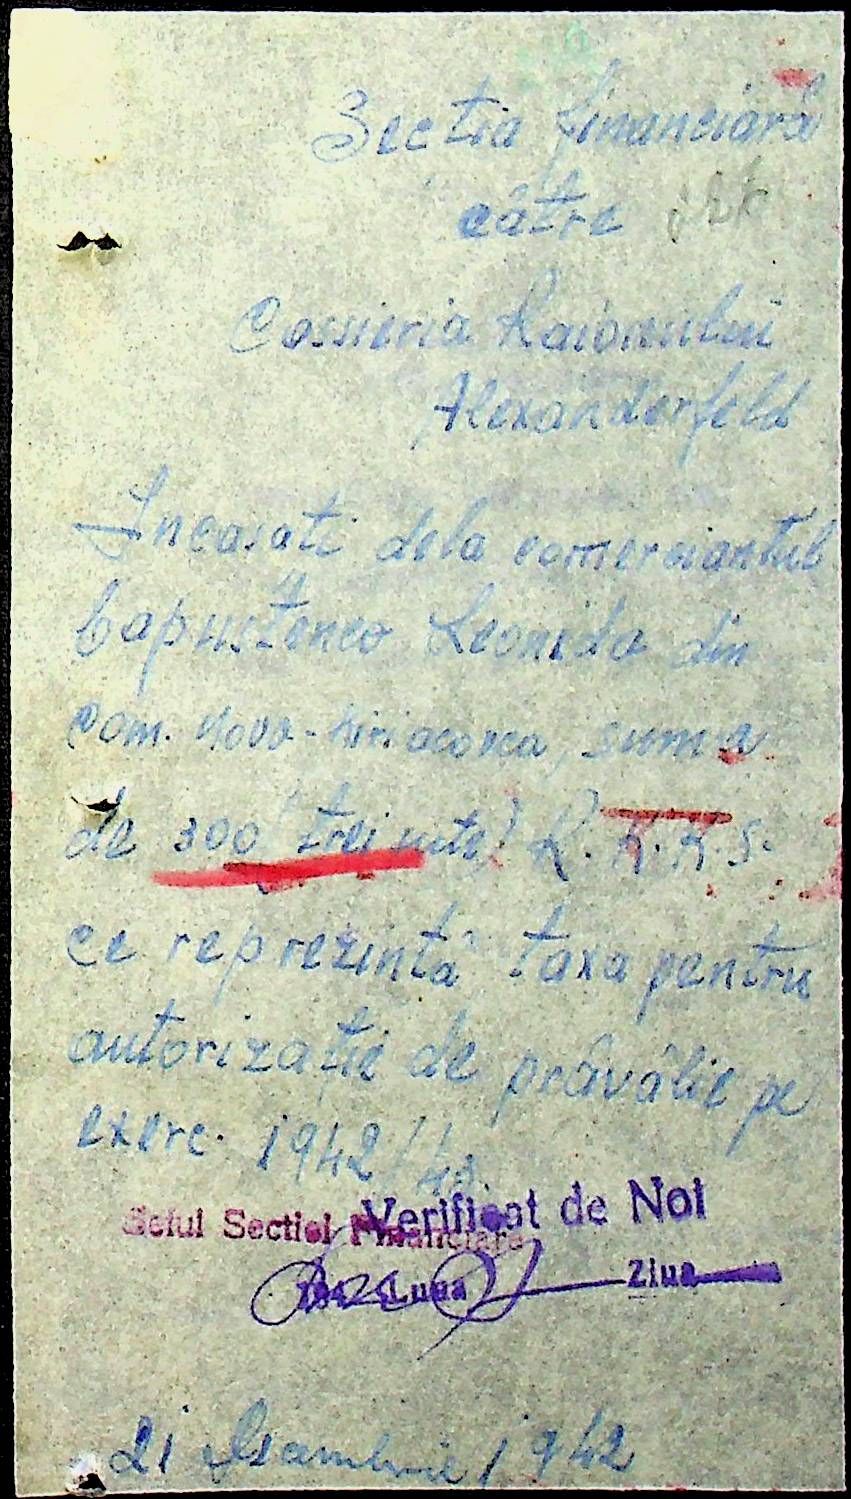 Sectia financiară
către
Cassieria Raionului
Alexanderfeld
Incasati dela comerciantul
Capustenco Leonida din
com. Novo-Kiriacovca, suma
de 300 (trei sute) R.K.K.S.
ce reprezintă taxa pentru
autorizație de prăvălie pe
exerc. 1942/43.
Verificat de Noi
Seful Sectiei Financiare
Luna Ziua
21 Decembrie 1942